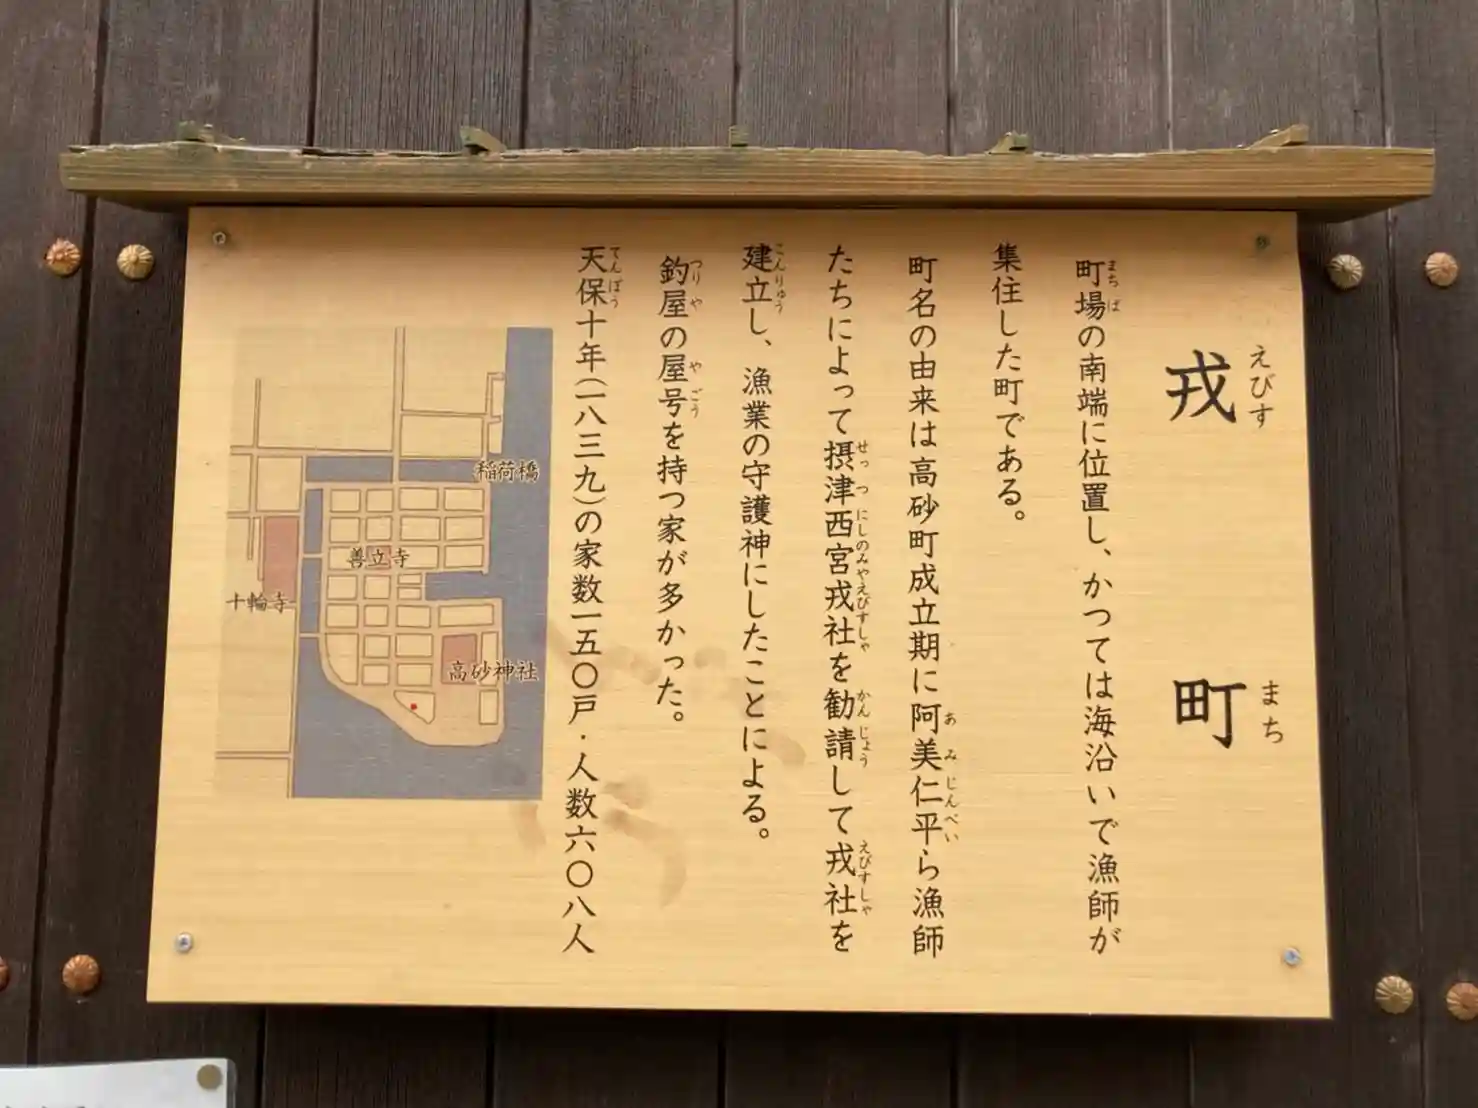 戎町
えびすまち
町場の南端に位置し、かつては海沿いで漁師が
まちば
集住した町である。
町名の由来は高砂町成立期に阿美仁平ら漁師
あみじんべい
たちによって摂津西宮戎社を勧請して戎社を
せっつにしのみやえびすしゃかんじょうえびすしゃ
建立し、漁業の守護神にしたことによる。
こんりゅう
釣屋の屋号を持つ家が多かった。
つりややごう
天保十年(一八三九)の家数一五〇戸・人数六〇八人
てんぽう
稲荷橋
善立寺
十輪寺
高砂神社